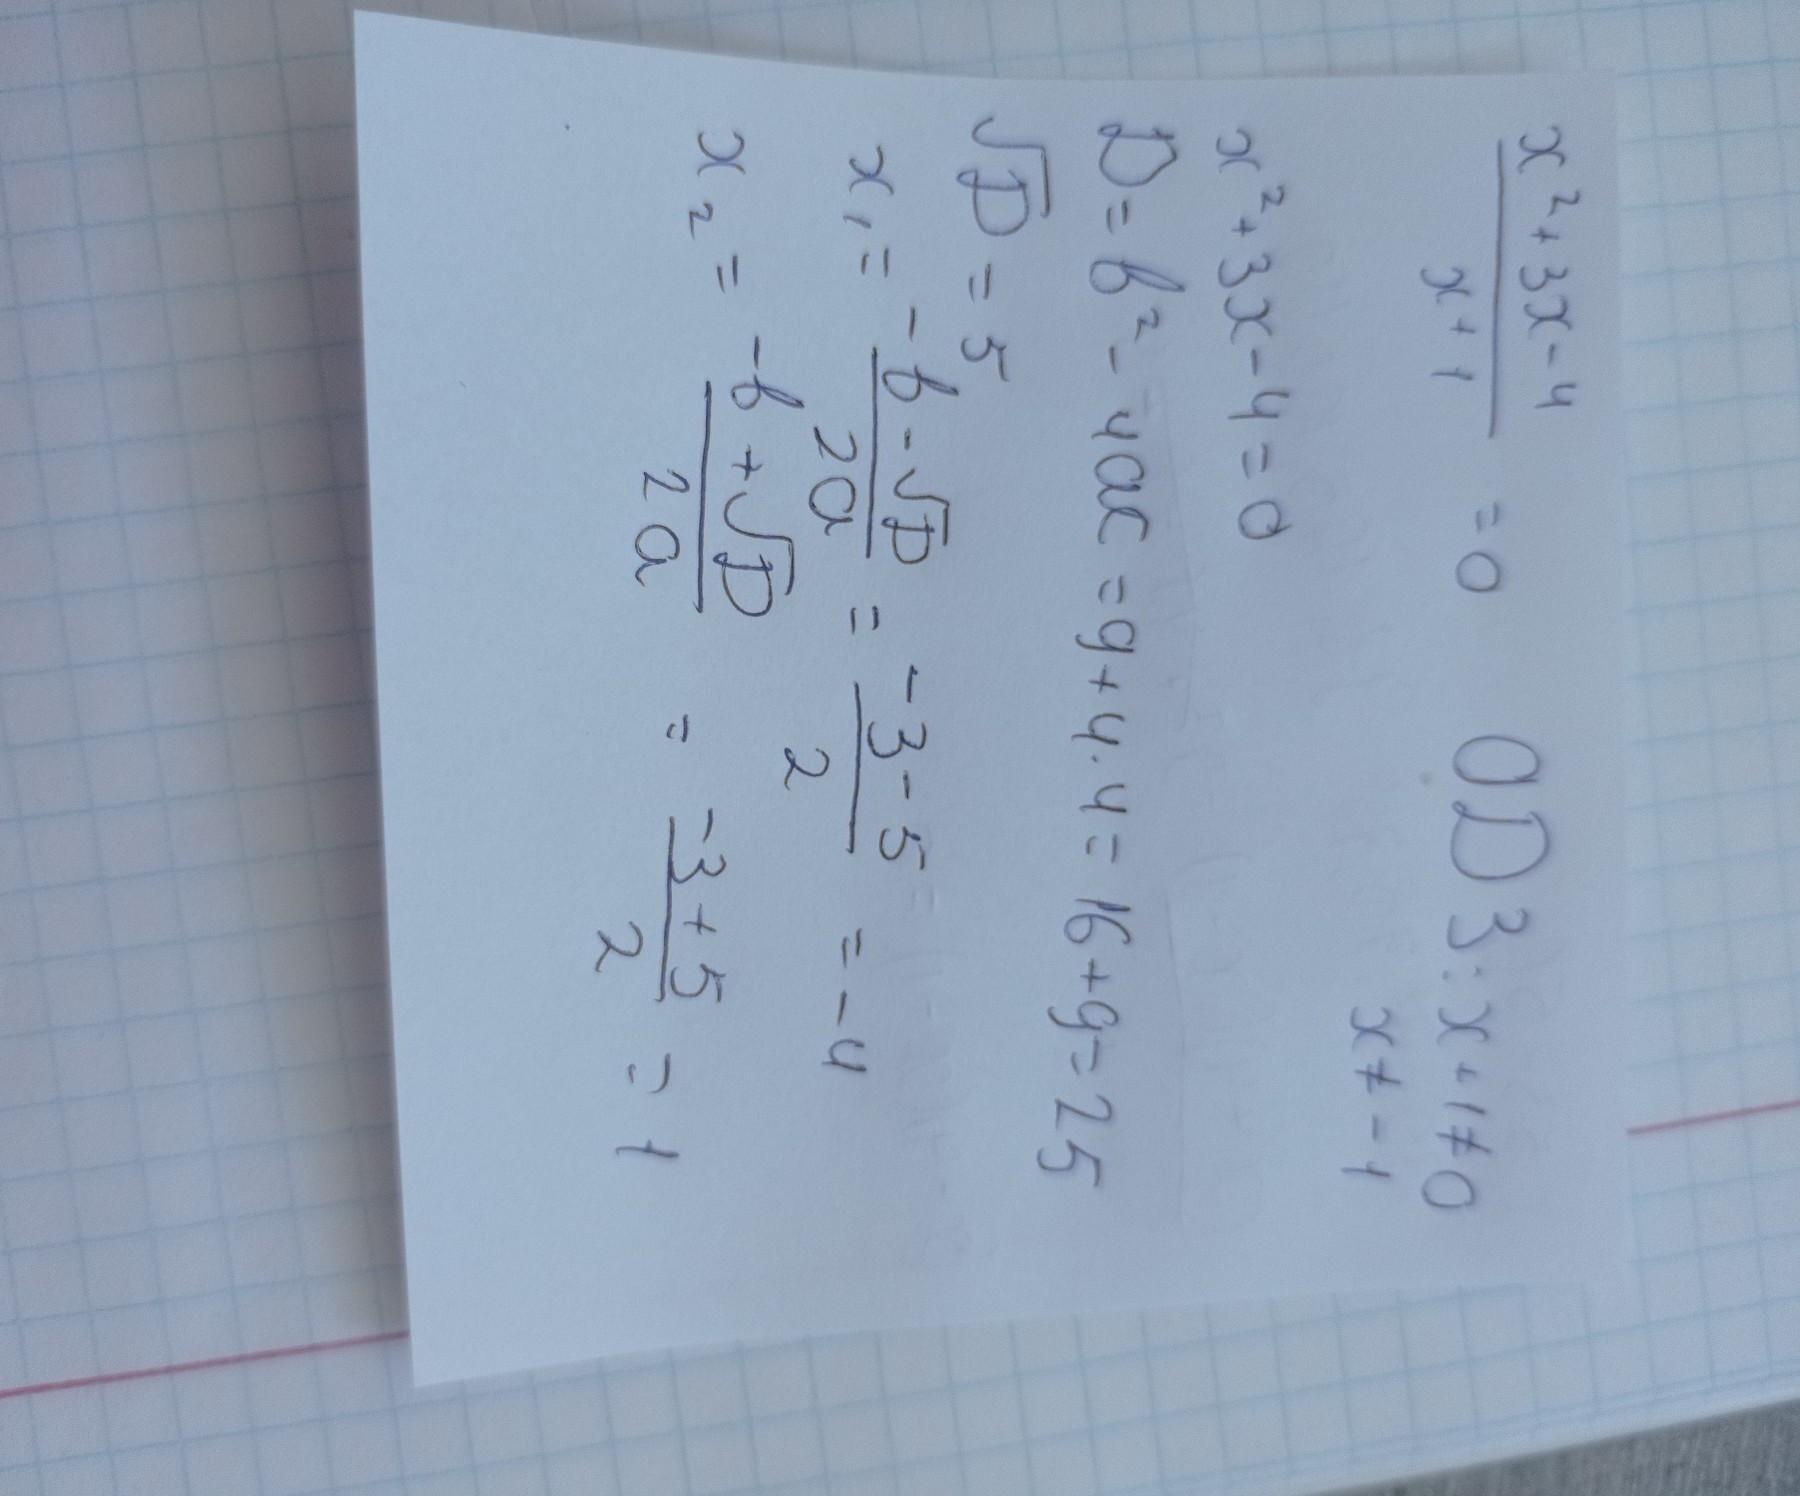 x²+3x-4/x+1 = 0   ОДЗ: x+1≠0
x≠-1
x²+3x-4=0
D=b²-4ac=9+4·4=16+9=25
√D=5
x₁=-b-√D/2a=-3-5/2=-4
x₂=-b+√D/2a=-3+5/2=1